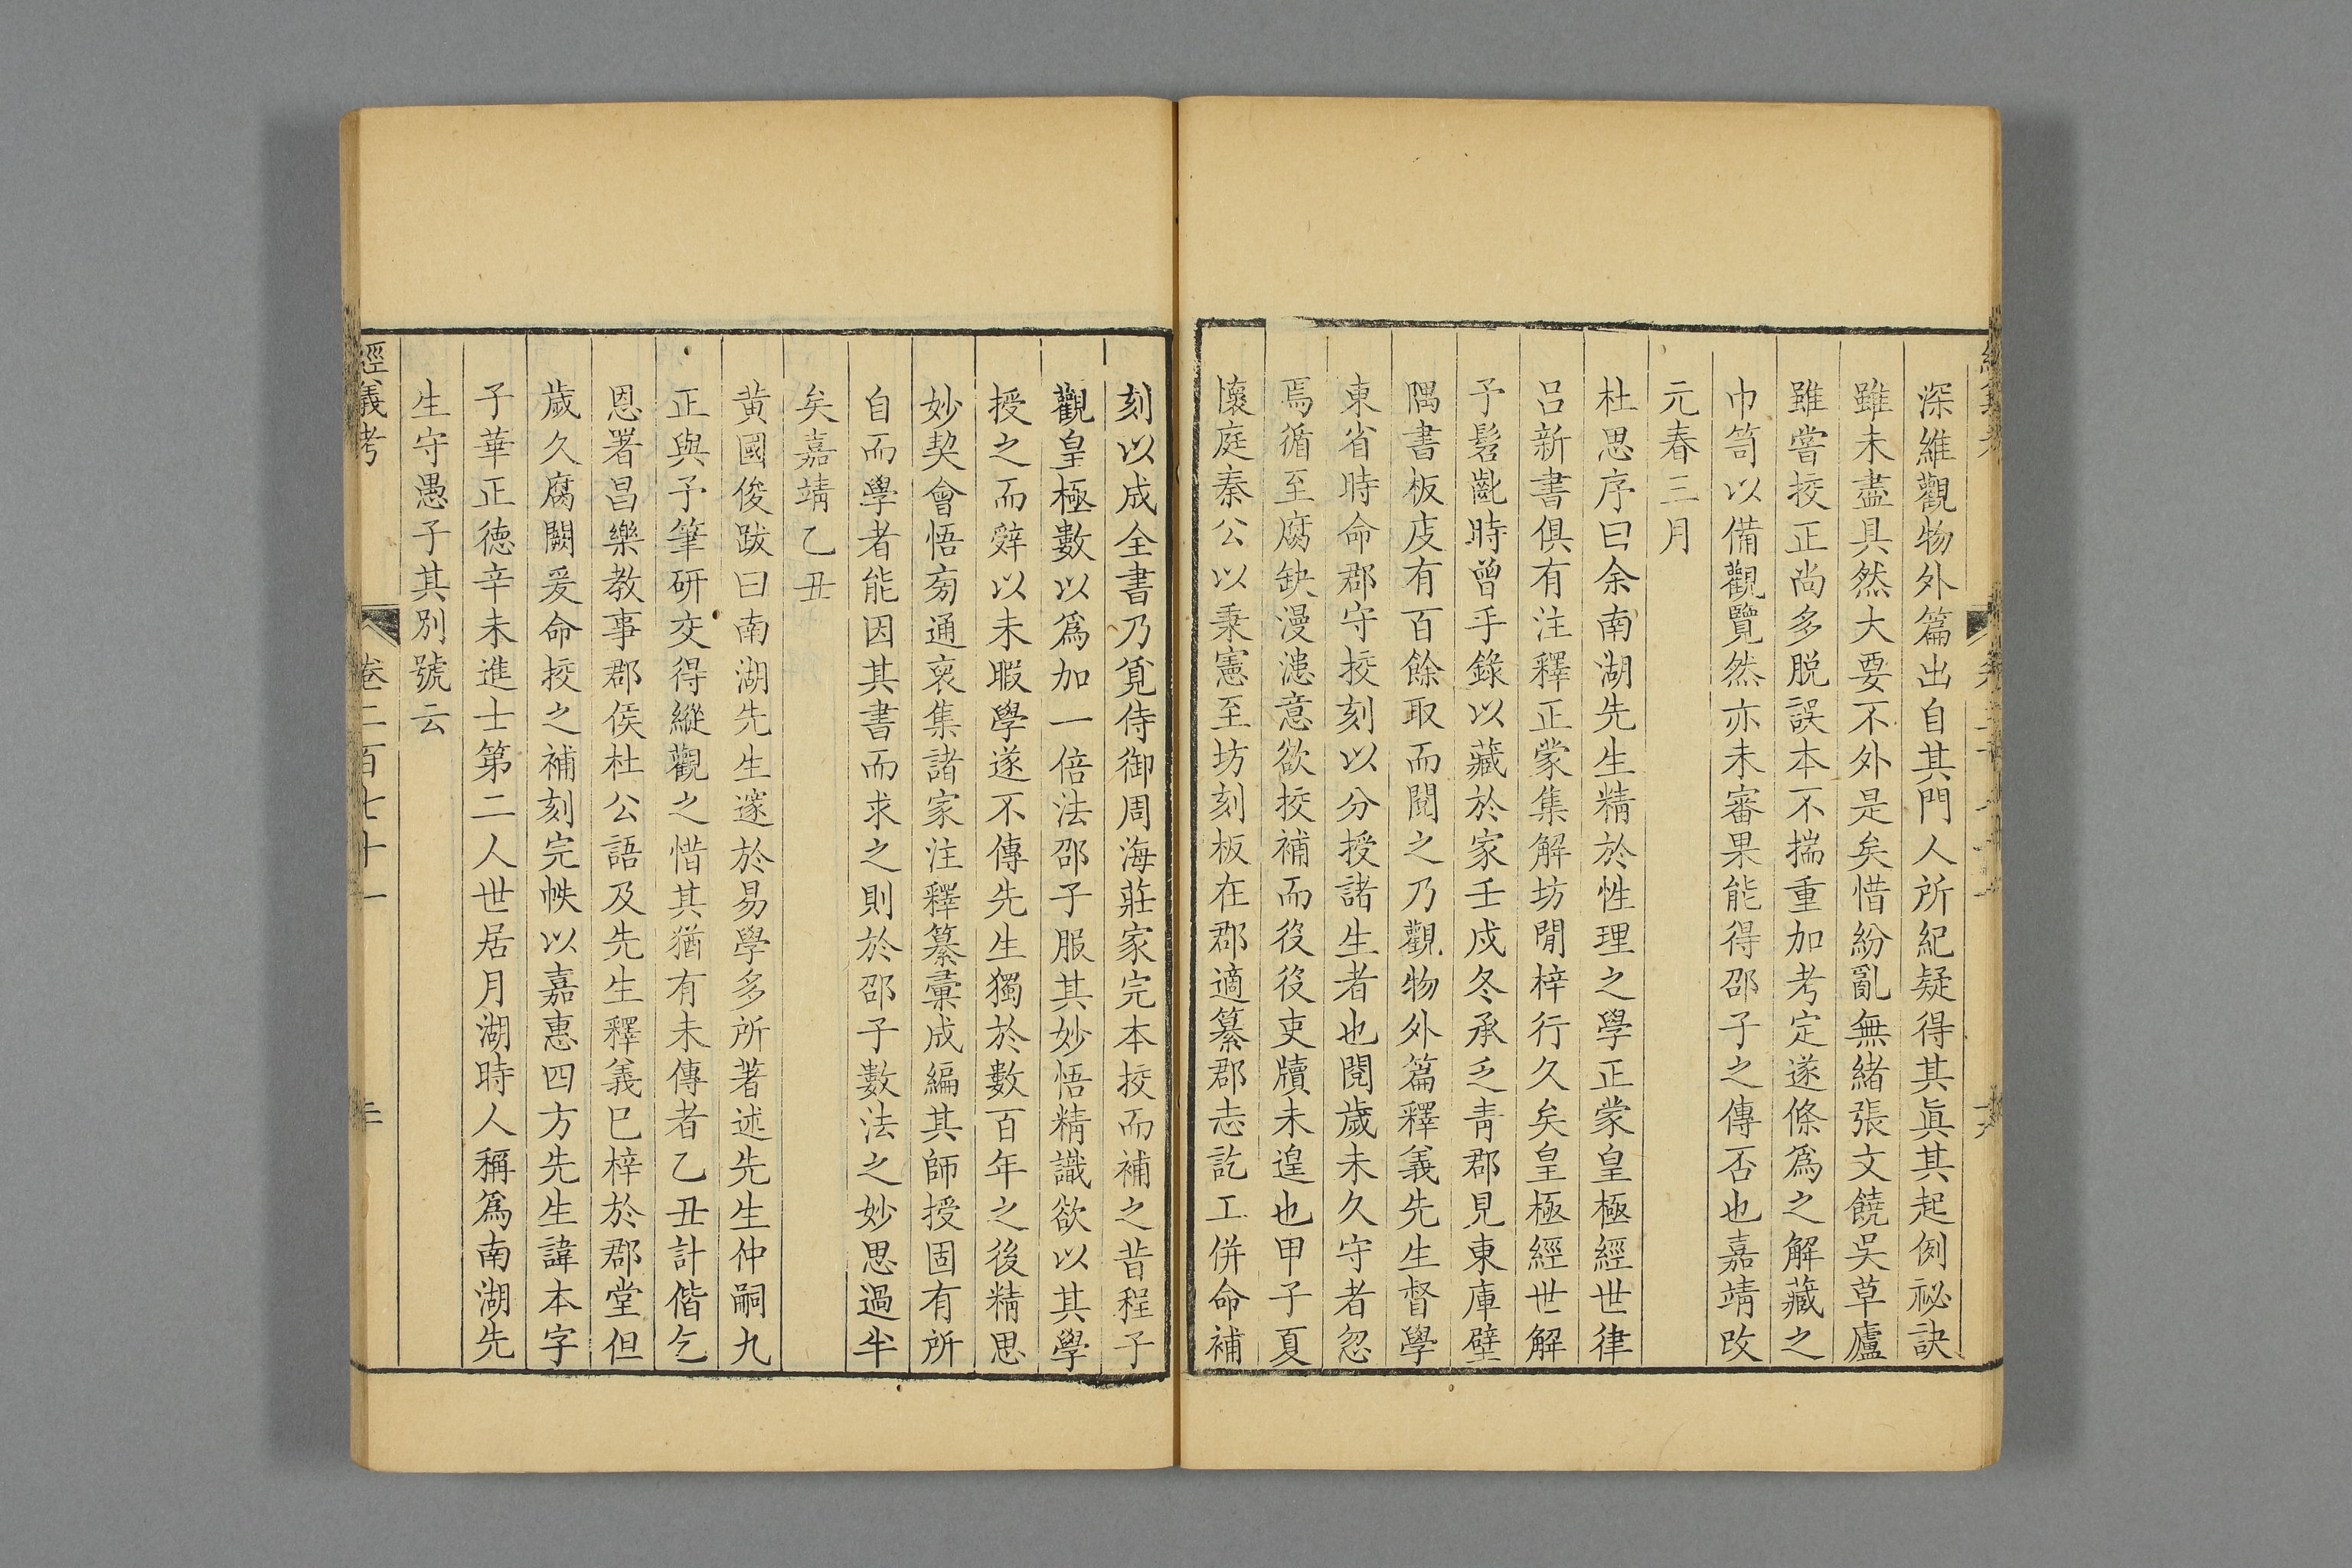 深維觀物外篇出自其門人所紀疑得其眞其起例祕訣
雖未盡具然大要不外是矣惜紛亂無緒張文饒吳草廬
雖嘗挍正尚多脱誤本不揣重加考定遂條爲之解藏之
巾笥以備觀覽然亦未審果能得邵子之傳否也嘉靖改
元春三月
杜思序曰余南湖先生精於性理之學正蒙皇極經世律
呂新書俱有注釋正蒙集解坊閒梓行久矣皇極經世解
予髫齓時曾手錄以藏於家壬戍冬承乏靑郡見東庫壁
隅書板庋有百餘取而閱之乃觀物外篇釋義先生督學
東省時命郡守挍刻以分授諸生者也閱歲未久守者忽
焉循至腐缺漫漶意欲挍補而役役吏牘未遑也甲子夏
懷庭秦公以秉憲至坊刻板在郡適纂郡志訖工併命補
刻以成全書乃覓侍御周海莊家完本挍而補之昔程子
觀皇極數以爲加一倍法邵子服其妙悟精識欲以其學
授之而辭以未暇學遂不傳先生獨於數百年之後精思
妙契會悟旁通裒集諸家注釋纂彙成編其師授固有所
自而學者能因其書而求之則於邵子數法之妙思過半
矣嘉靖乙丑
黃國俊跋曰南湖先生邃於易學多所著述先生仲嗣九
正與予筆研交得縱觀之惜其猶有未傳者乙丑計偕乞
恩署昌樂教事郡侯杜公語及先生釋義已梓於郡堂但
歲久腐闕爰命挍之補刻完帙以嘉惠四方先生諱本字
子華正德辛未進士第二人世居月湖時人稱爲南湖先
生守愚子其別號云
經義考
卷二百七十一